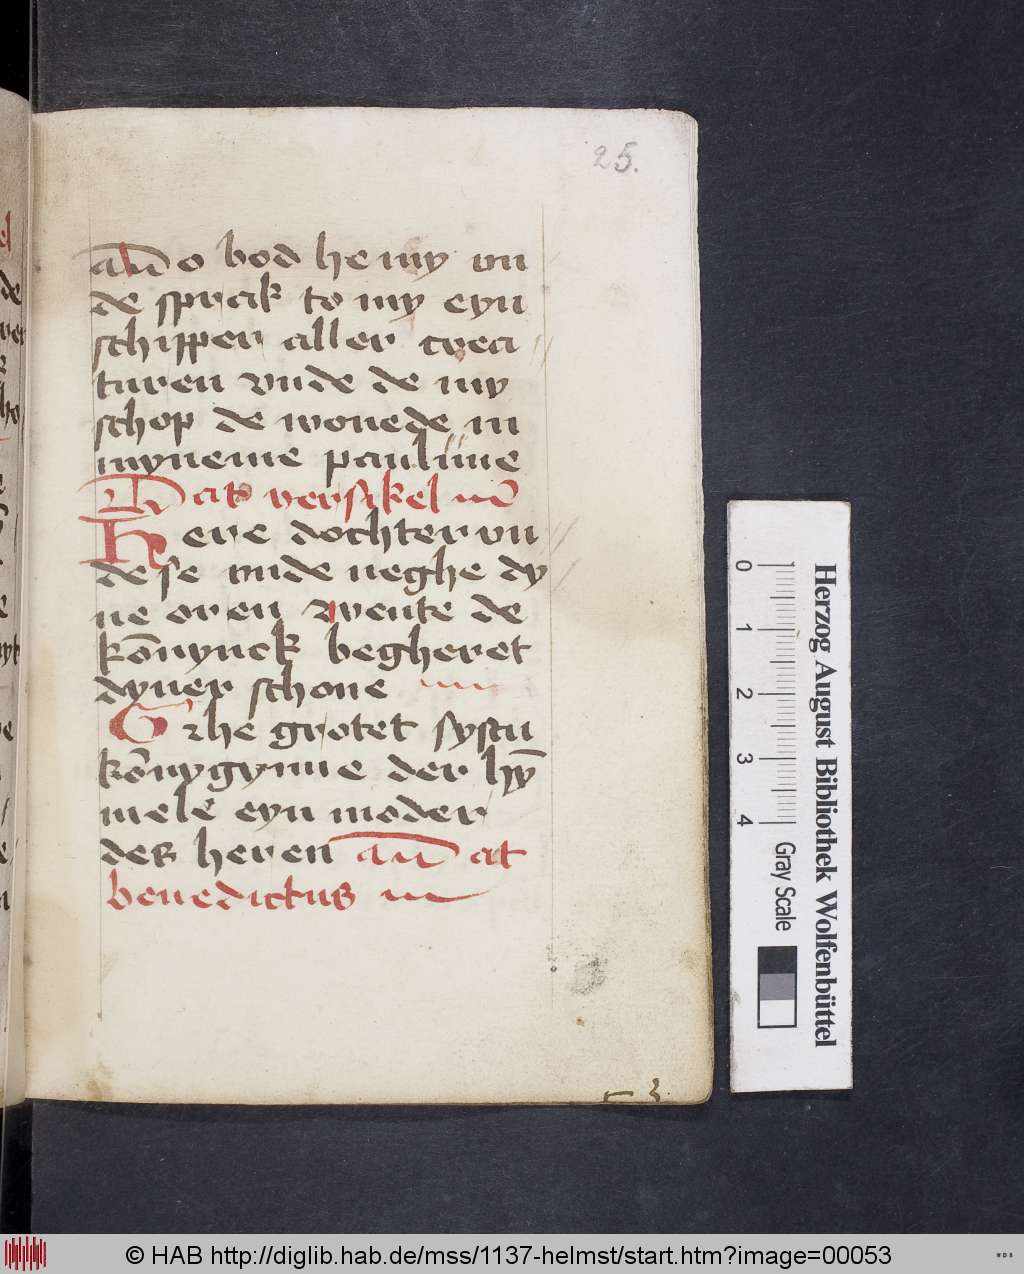 25.
an̄ o bod he my vn
de sprak to my eyn
schipper aller crea //
turen vnde de my
schop de wonede in
myneme pauluͤne
Dat versikel
Here dochter vn //
de se vnde neghe dy //
ne oren wente de
kōnynck begheret
dyner schone
Ghe grotet systu
kōnygynne der hȳ
mele eyn moder
des heren an̄ at
benedictus
Herzog August Bibliothek Wolfenbüttel
0 1 2 3 4
Gray Scale
© HAB http://diglib.hab.de/mss/1137-helmst/start.htm?image=00053